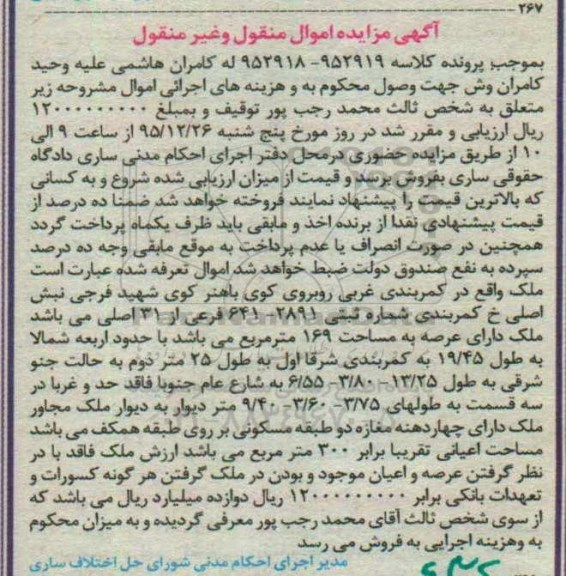 ۲۶۷
آگهی مزایده اموال منقول وغیر منقول
بموجب پرونده کلاسه ۹۵۲۹۱۹- ۹۵۲۹۱۸ له کامران هاشمی علیه وحید
کامران وش جهت وصول محکوم به و هزینه های اجرائی اموال مشروحه زیر
متعلق به شخص ثالث محمد رجب پور توقیف و بمبلغ ۱۲۰۰۰۰۰۰۰۰۰
ریال ارزیابی و مقرر شد در روز مورخ پنج شنبه ۹۵/۱۲/۲۶ از ساعت ۹ الی
۱۰ از طریق مزایده حضوری درمحل دفتر اجرای احکام مدنی ساری دادگاه
حقوقی ساری بفروش برسد و قیمت از میزان ارزیابی شده شروع و به کسانی
که بالاترین قیمت را پیشنهاد نمایند فروخته خواهد شد ضمنا ده درصد از
قیمت پیشنهادی نقدا از برنده اخذ و مابقی باید ظرف یکماه پرداخت گردد
همچنین در صورت انصراف یا عدم پرداخت به موقع مابقی وجه ده درصد
سپرده به نفع صندوق دولت ضبط خواهد شد اموال تعرفه شده عبارت است
ملک واقع در کمربندی غربی روبروی کوی باهنر کوی شهید فرجی نبش
اصلی خ کمربندی شماره ثبتی ۲۸۹۱- ۶۴۱ فرعی از ۳۱ اصلی می باشد
ملک دارای عرصه به مساحت ۱۶۹ مترمربع می باشد با حدود اربعه شمالا
به طول ۱۹/۴۵ به کمربندی شرقا اول به طول ۲۵ متر دوم به حالت جنو
شرقی به طول ۱۳/۲۵- ۳/۸۰- ۶/۵۵ به شارع عام جنوبا فاقد حد و غربا در
سه قسمت به طولهای ۳/۷۵- ۳/۶۰- ۹/۴۰ متر دیوار به دیوار ملک مجاور
ملک دارای چهاردهنه مغازه دو طبقه مسکونی بر روی طبقه همکف می باشد
مساحت اعیانی تقریبا برابر ۳۰۰ متر مربع می باشد ارزش ملک فاقد با در
نظر گرفتن عرصه و اعیان موجود و بودن در ملک گرفتن هر گونه کسورات و
تعهدات بانکی برابر ۱۲۰۰۰۰۰۰۰۰۰ ریال دوازده میلیارد ریال می باشد که
از سوی شخص ثالث آقای محمد رجب پور معرفی گردیده و به میزان محکوم
به وهزینه اجرایی به فروش می رسد
مدیر اجرای احکام مدنی شورای حل اختلاف ساری